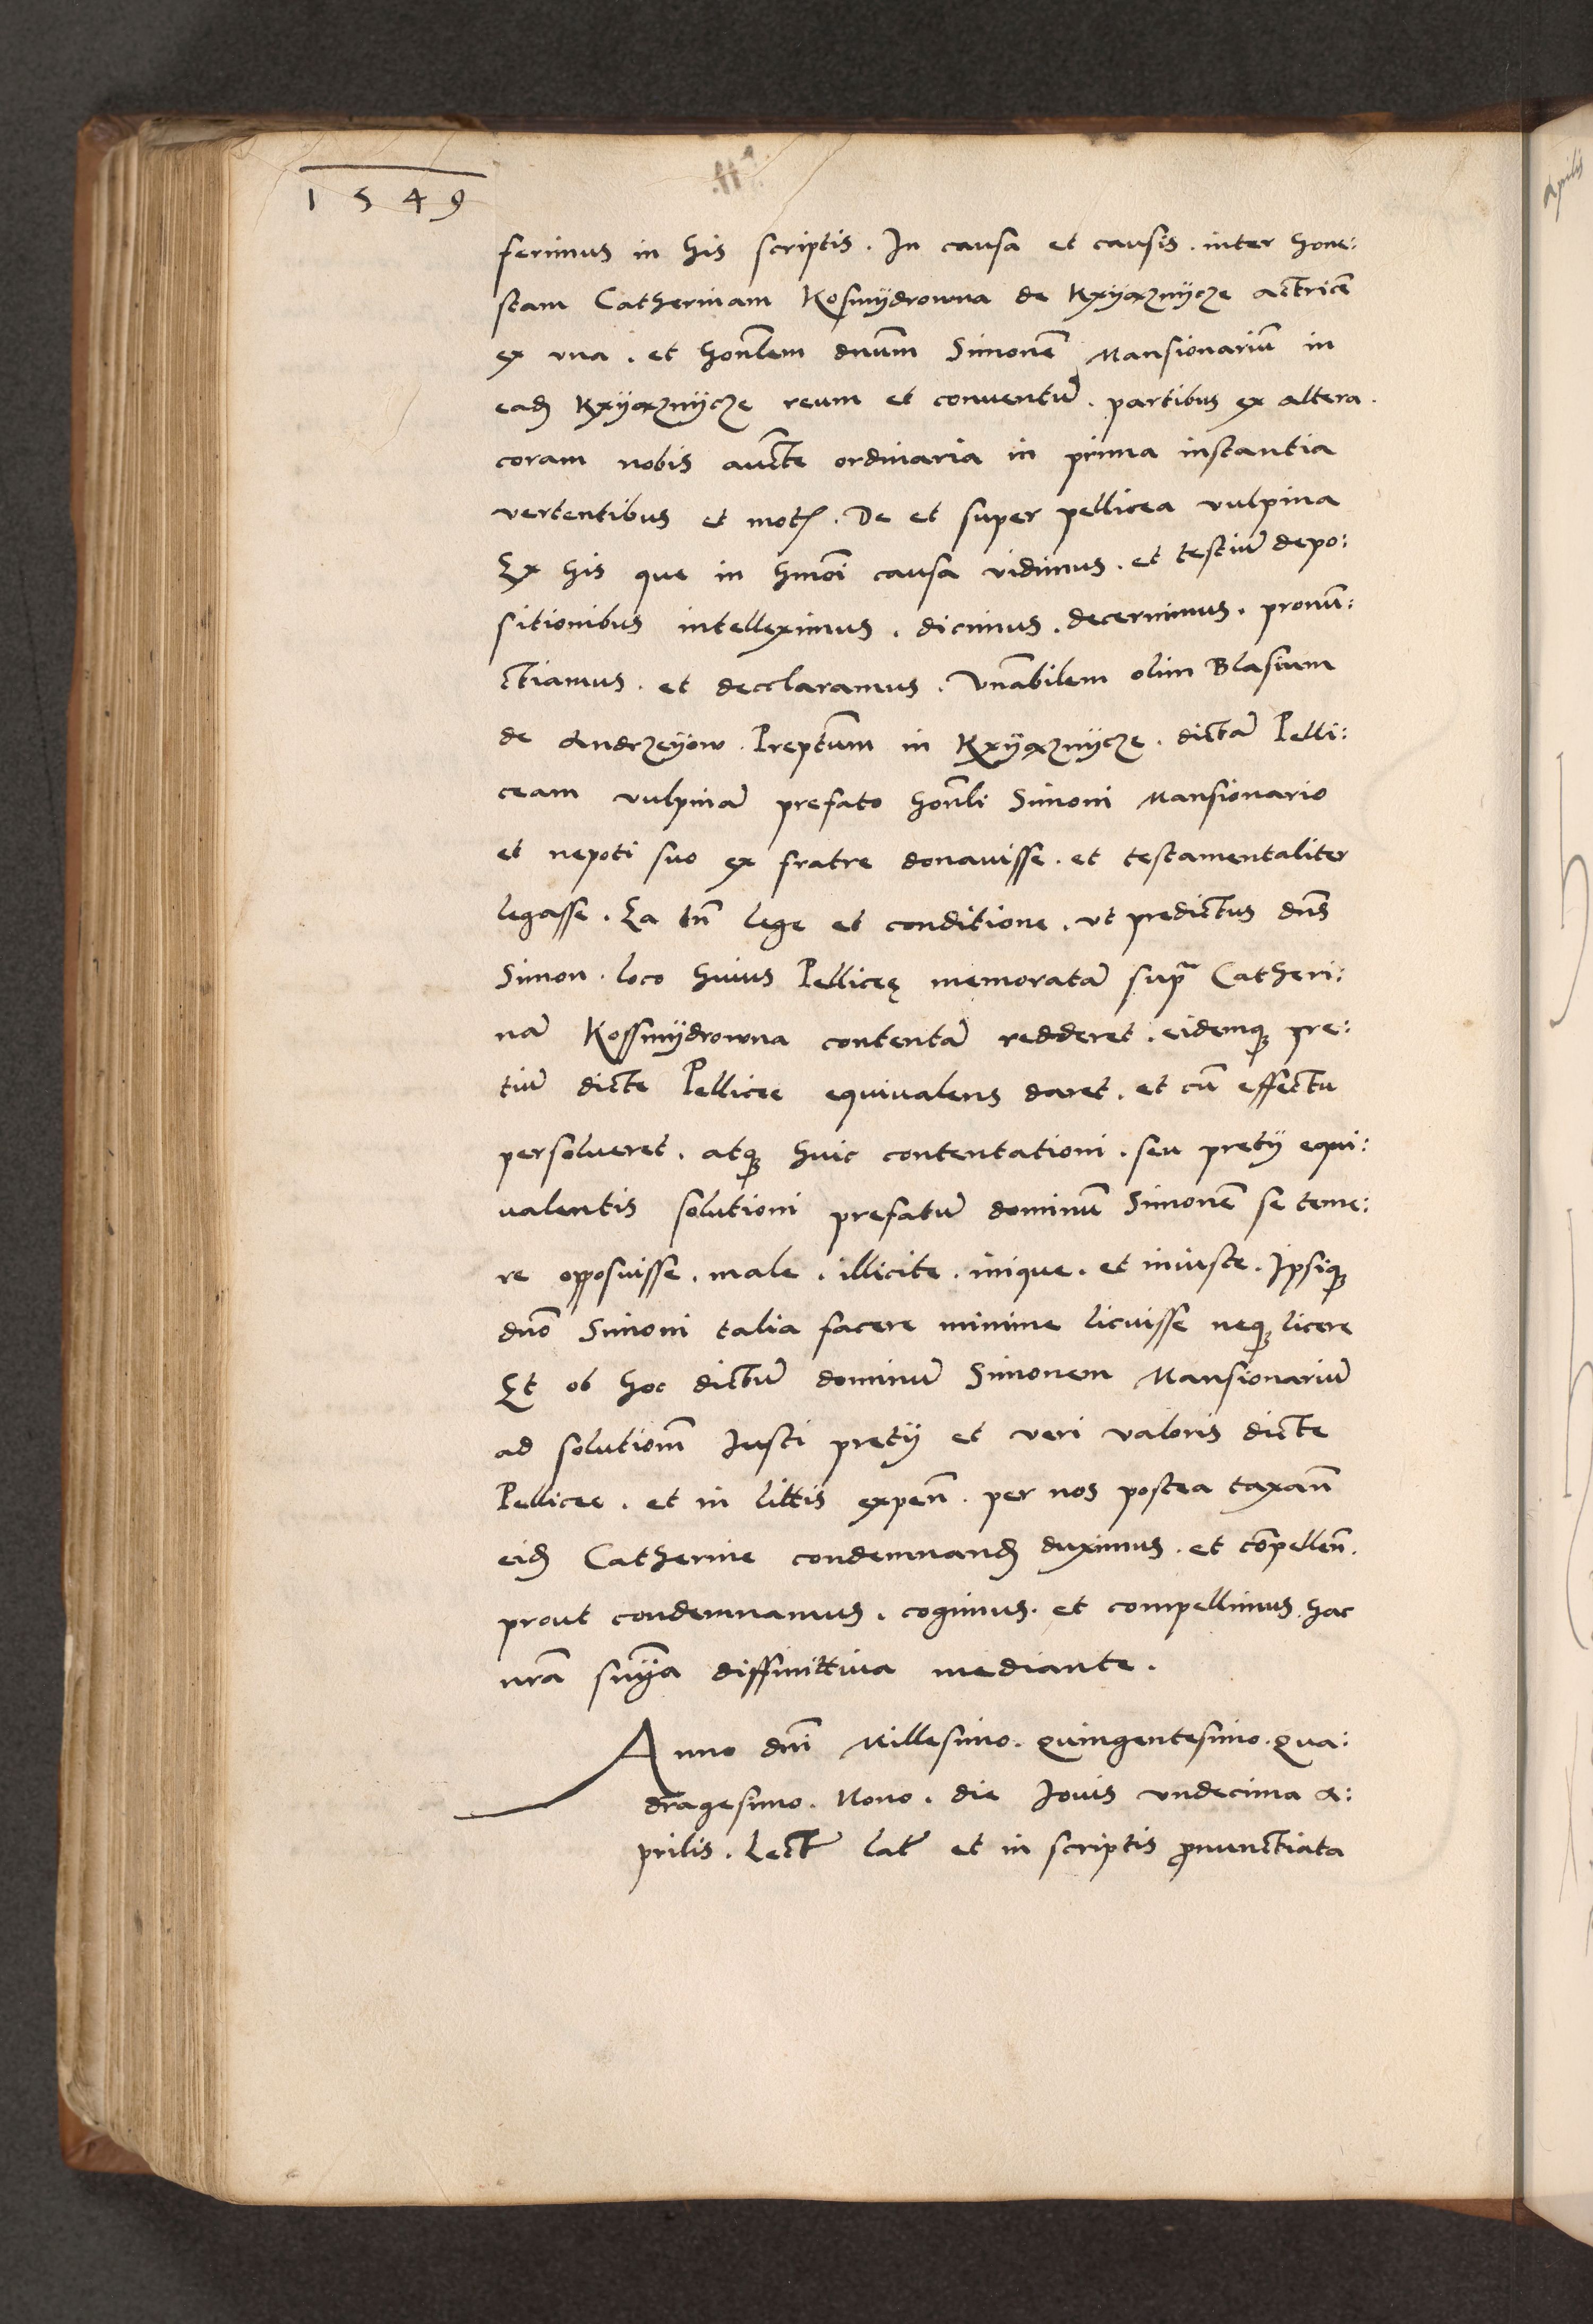 1549
ferimus in his scriptis . In causa et causis . inter hone:
stam Catherinam Kosmÿdrowna de Kxÿąznÿcze actricē
ex vna . et honlem dnum Simonē Mansionariū in
eadꝫ Kxÿąznÿcze reum et conventū . partibus ex altera .
coram nobis aucte ordinaria in prima instantia
vertentibus et mot . De et super pellicea vulpina
Ex his que in hmoi causa vidimus . et testiū depo:
sitionibus intelleximus . dicimus . decernimus . pronū:
ctiamus . et decclaramus . Vnābilem olim Blasium
de Andrzeÿow . Preptum in Kxÿąznÿcze . dictā Pelli:
ceam vulpinā prefato honli Simoni Mansionario
et nepoti suo ex fratre donavisse . et testamentaliter
legasse . Ea tn̄ lege et conditione . vt predictus dn̄s
Simon . loco huius Pellicę memoratā supra Catheri:
nā Kossmÿdrowna contentā redderet . eidemqꝫ pre:
tiū dicte Pellicee equivalens daret . et cū effectu
persolueret . atqꝫ huic contentationi . seu pretÿ equi:
ualentis solutioni prefatū dominū Simonē se teme:
re opposuisse . male . illicite . inique . et iniuste . Ipsiqꝫ
dn̄o Simoni talia facere minime licuisse neqꝫ licere
Et ob hoc dictū dominū Simonem Mansionariū
ad solutionē Justi pretÿ et veri valoris dicte
Pellicee . et in littis expen̄ . per nos postea taxan̄
eidꝫ Catherine condemnandꝫ duximus . et cōpellen̄ .
prout condemnamus . cogimus . et compellimus hac
nr̄a sn̄ÿa diffinittiua mediante .
Anno dn̄i Millesimo . quingentesimo . qua:
dragesimo . Nono . die Jovis vndecima A:
prilis . Lect̄ lat̄ et in scriptis pronunctiata
Aprilis